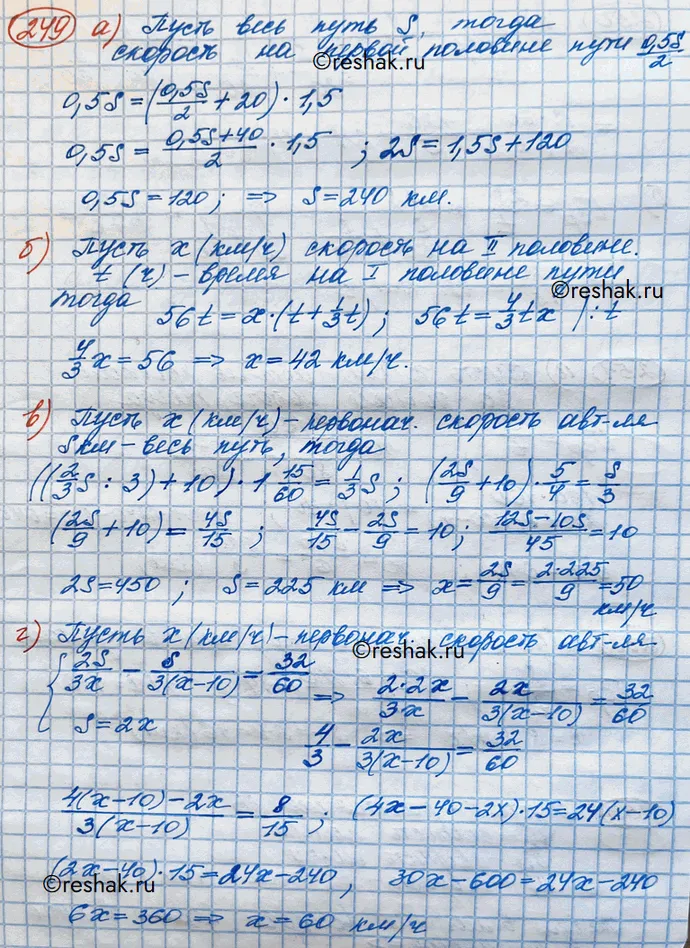 249 а) Пусть весь путь S, тогда
скорость на первой половине пути 0,5S/2
0,5S = (0,5S/2 + 20) · 1,5
0,5S = (0,5S+40)/2 · 1,5 ; 2S = 1,5S + 120
0,5S = 120; => S = 240 км.
б) Пусть x (км/ч) скорость на II половине.
t (ч) - время на I половине пути
тогда 56t = x·(t + 1/3 t); 56t = 4/3 tx |:t
4/3 x = 56 => x = 42 км/ч.
в) Пусть x (км/ч) - первонач. скорость авт-ля
S км - весь путь, тогда
((2/3 S : 3) + 10) · 1 15/60 = 1/3 S; (2S/9 + 10) · 5/4 = S/3
(2S/9 + 10) = 4S/15 ; 4S/15 - 2S/9 = 10; (12S-10S)/45 = 10
2S = 450 ; S = 225 км => x = 2S/9 = 2·225/9 = 50 км/ч
г) Пусть x (км/ч) - первонач. скорость авт-ля
{ 2S/3x - S/3(x-10) = 32/60
S = 2x
=> 2·2x/3x - 2x/3(x-10) = 32/60
4/3 - 2x/3(x-10) = 32/60
(4(x-10) - 2x)/3(x-10) = 8/15 ; (4x - 40 - 2x)·15 = 24(x-10)
(2x-40)·15 = 24x - 240 , 30x - 600 = 24x - 240
6x = 360 => x = 60 км/ч
©reshak.ru
©reshak.ru
©reshak.ru
©reshak.ru
©reshak.ru